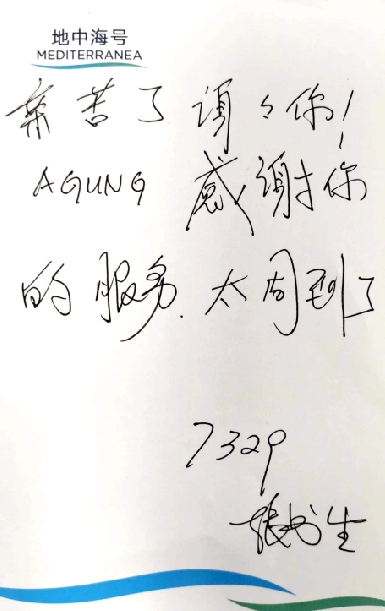 地中海号
MEDITERRANEA
辛苦了 谢々你！
AGUNG 感谢你
的服务.太周到了
7329
张书生